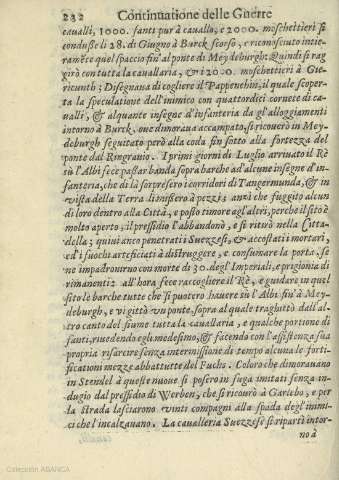 232 Continuatione delle Guerre
caualli, 1000. fanti pur à cauallo, e 2000. moschettieri si
cōdusse li 28. di Giugno à Burck scoso, e riconosciuto intie-
ramēte quel spaccio fin'al ponte di Meydeburgh: Quindi si rag
girò con tutta la cauallaria, & 12000. moschettieri à Gie-
ricunth; Disegnaua di cogliere il Pappenhin, il quale scoper-
ta la speculatione dell'inimico con quattordici cornete di ca-
ualli, & alquante insegne d'infanteria da gl'alloggiamenti
intorno à Burck, oue dimoraua accampato, si ricouerò in Mey-
deburgh seguitato però alla coda fin sotto alla fortezza del
ponte dal Ringrauio. I primi giorni di Luglio arriuato il Rè
sù l'Albi fece passar banda sopra barche ad alcune insegne d'in-
fanteria, che di là sorpresero i corridori di Tangermunda, & in
vista della Terra li missero à pezzi; anzi che fuggito alcun
di loro dentro alla Città, e posto timore agl'altri, perche il sito è
molto aperto, il pressidio l'abbandonò, e si ritirò nella Citta-
della; quiui anco penetrati i Suezzesi, & accostati i mortari,
ed i fuochi arteficiati à distruggere, e consumare la porta, se
ne impadronirono con morte di 30. degl'Imperiali, e prigionia di
rimanenti: all'hora fece raccogliere il Rè, e guidare in quel
sito le barche tutte che si puotero hauere sù l'Albi fin'à Mey-
deburgh, e vi gittò vn ponte, sopra al quale traghittò dall'al-
tro canto del fiume tutta la cauallaria, e qualche portione di
fanti, riuedendo egli medesimo, & facendo con l'assistenza sua
propria risarcire senza intermissione di tempo alcuna le forti-
ficationi mezze abbattutte del Fuchs. Coloro che dimorauano
in Stendel à queste nuoue si posero in fuga imitati senza in-
dugio dal pressidio di Werben, che si ricourò à Garlebo, e per
la strada lasciarono vinti compagni alla spada degl'inimi-
ci che l'incalzauano. La caualleria Suezzese si ripartì intor-
no à
Colección ABANCA